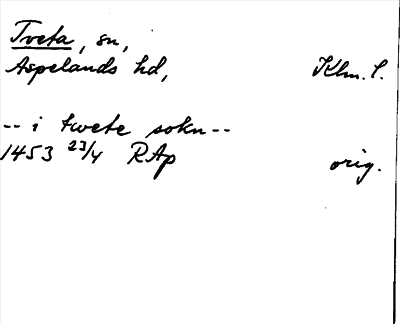 Tveta, sn,
Aspelands hd, Klm. l.
-- i twete sokn --
1453 23/4 RAp orig.